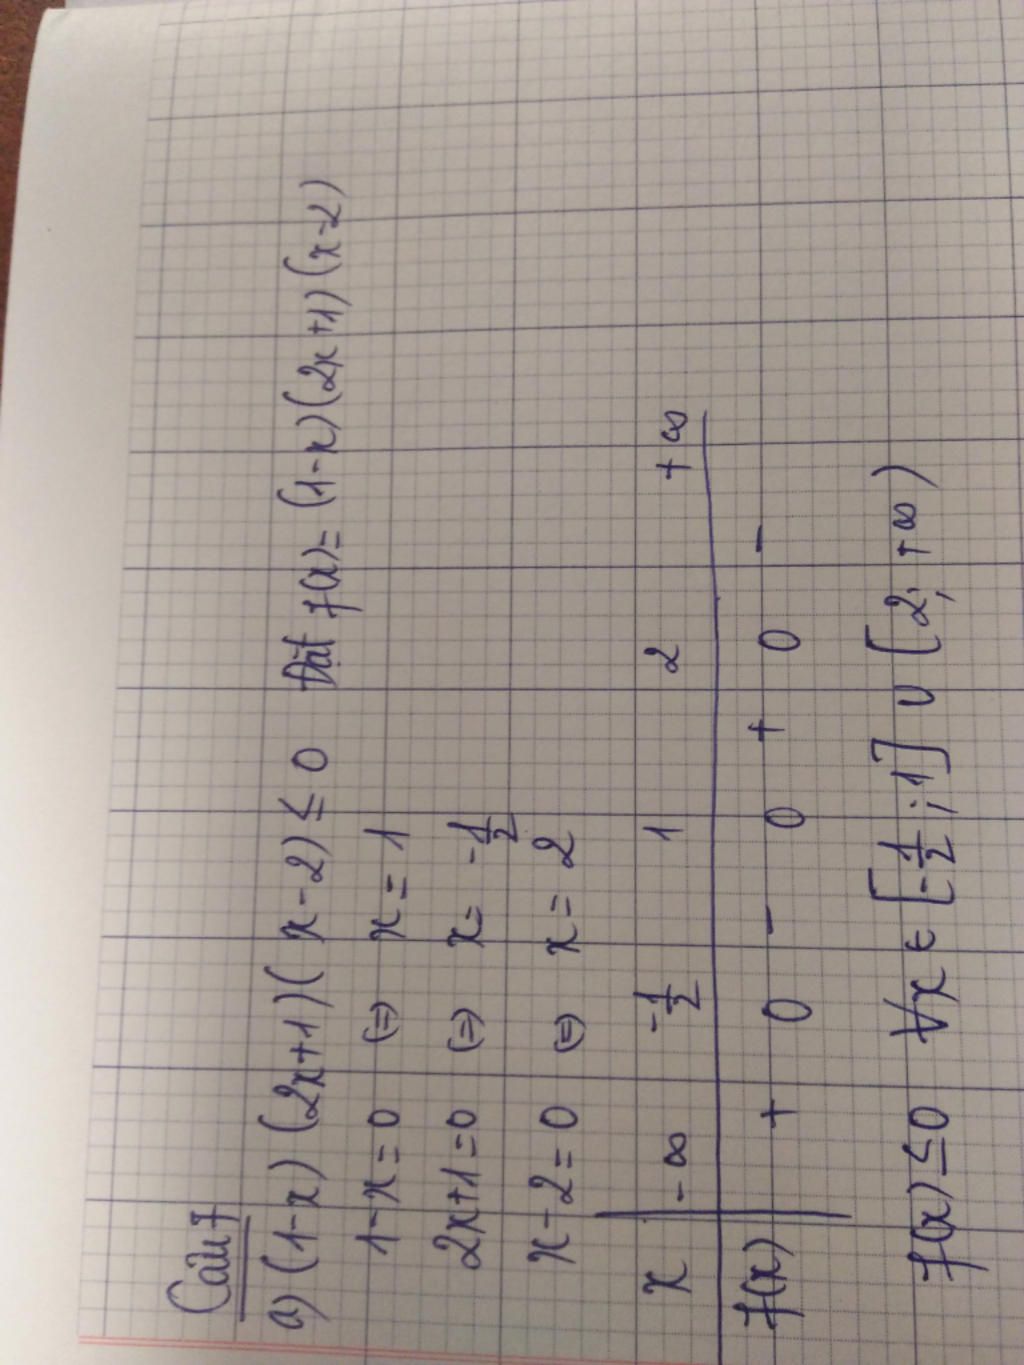 Câu 7
a) (1-x) (2x+1) (x-2) ≤ 0 Đặt f(x) = (1-x) (2x+1) (x-2)
1-x=0 (=) x = 1
2x+1=0 (=) x= -1/2
x-2=0 (=) x = 2
x -∞ -1/2 1 2 +∞
f(x) + 0 - 0 + 0 -
f(x) ≤0 ∀x ∈ [-1/2 ; 1] ∪ [2; +∞)